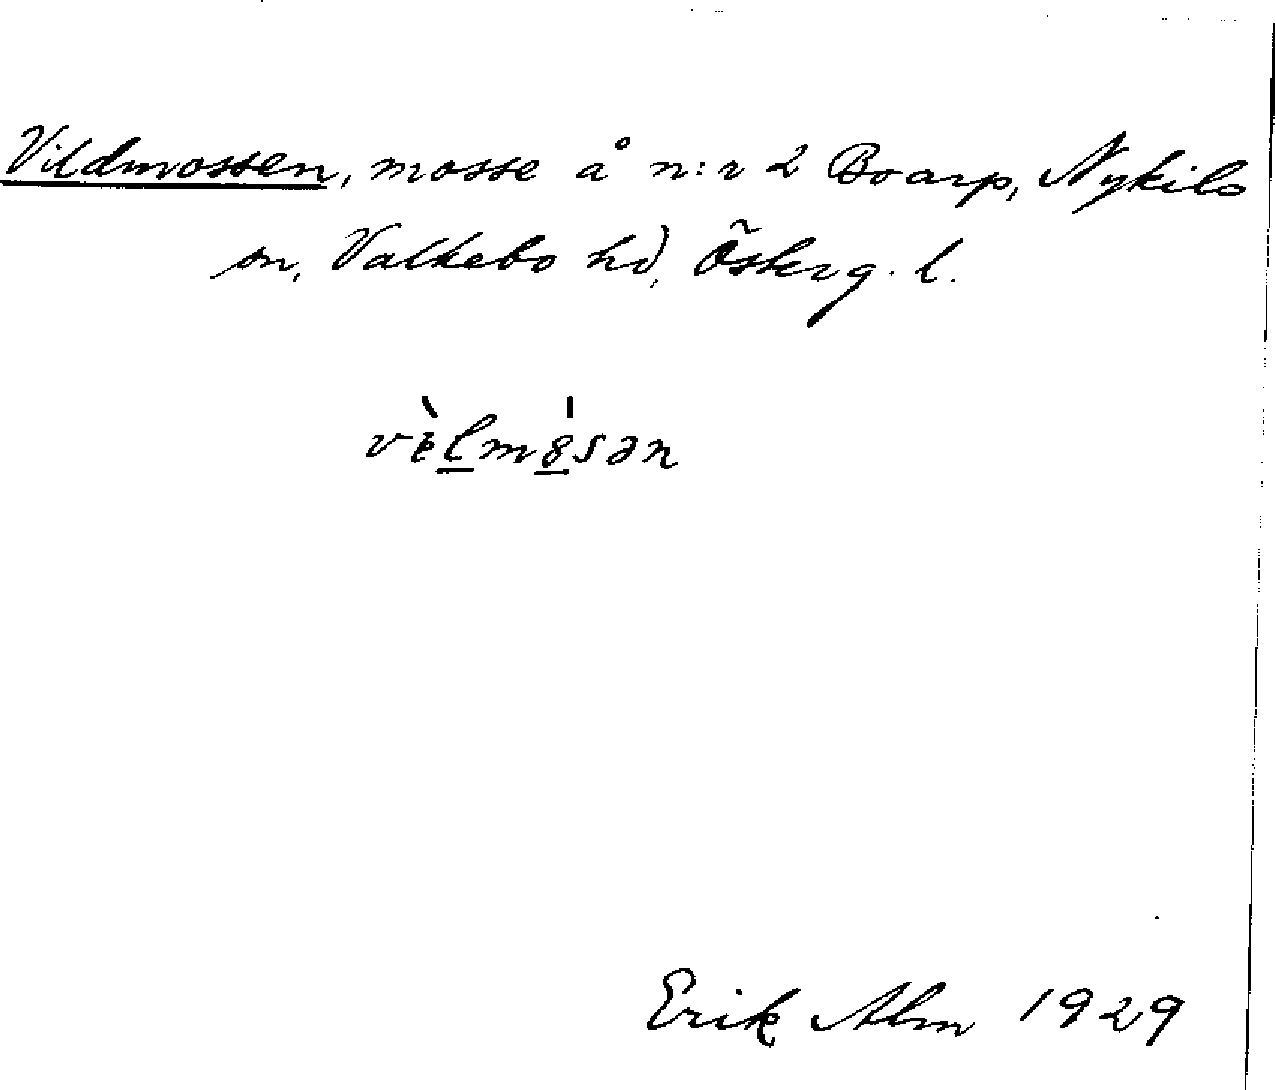 Vildmossen, mosse å n:r 2 Boarp, Nykils
sn, Valkebo hd, Österg. l.
Erik Alm 1929